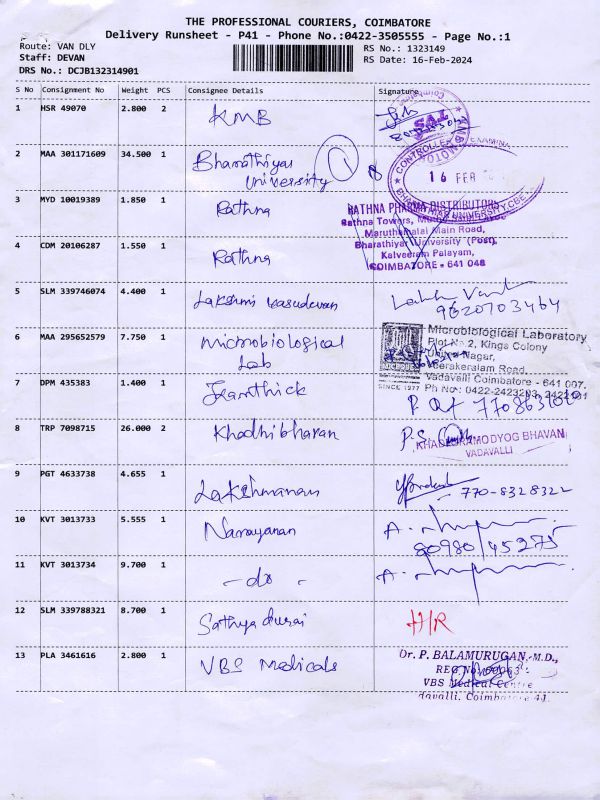 THE PROFESSIONAL COURIERS, COIMBATORE
Delivery Runsheet - P41 - Phone No.:0422-3505555 - Page No.:1
Route: VAN DLY
RS No.: 1323149
Staff: DEVAN
RS Date: 16-Feb-2024
DRS No.: DCJB132314901
S No Consignment No Weight PCS Consignee Details Signature
1 HSR 49070 2.800 2 KMB
2 MAA 301171609 34.500 1 Bharathiyar
University
CONTROLLER
16 FEB
BHARATHIAR UNIVERSITY, CBE
3 MYD 10019389 1.850 1 Rathna
RATHNA PHARMA DISTRIBUTORS
Rathna Towers,
Maruthamalai Main Road,
4 CDM 20106287 1.550 1 Rathna
Bharathiyar University (Post),
Kalveeram Palayam,
COIMBATORE - 641 046
5 SLM 339746074 4.400 1 Lakshmi Vasudevan
9620703464
6 MAA 295652579 7.750 1 Microbiological
Lab
Microbiological Laboratory
Plot No.2, Kings Colony
Nagar,
Veerakeralam Road,
Vadavalli Coimbatore - 641 007.
SINCE 1977 Ph No: 0422-2423203,
7 DPM 435383 1.400 1
8 TRP 7098715 26.000 2 Khadhibhavan
P.S.
KHADI GRAMODYOG BHAVAN
VADAVALLI
9 PGT 4633738 4.655 1 Lakshmanan
770-8328322
10 KVT 3013733 5.555 1 Narayanan
80980/45275
11 KVT 3013734 9.700 1 -do-
12 SLM 339788321 8.700 1 Sathyadurai H/R
13 PLA 3461616 2.800 1 VBS Medicals
Dr. P. BALAMURUGAN, M.D.,
VBS Medical Centre
Vadavalli, Coimbatore-41.